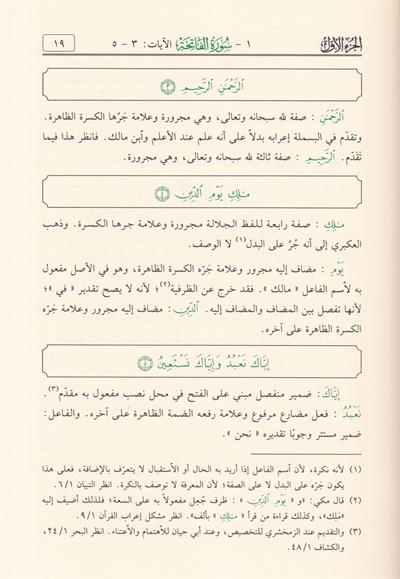 الجزء الأول
١ - سورة الفاتحة الآيات: ٣ - ٥
١٩
ٱلرَّحْمَٰنِ ٱلرَّحِيمِ ٣
ٱلرَّحْمَٰنِ : صفة لله سبحانه وتعالى، وهي مجرورة وعلامة جَرّها الكسرة الظاهرة.
وتقدّم في البسملة إعرابه بدلاً على أنه علم عند الأعلم وٱبن مالك. فانظر هذا فيما
تَقَدّم. ٱلرَّحِيمِ : صفة ثالثة لله سبحانه وتعالى، وهي مجرورة.
مَٰلِكِ يَوْمِ ٱلدِّينِ ٤
مَٰلِكِ : صفة رابعة للفظ الجلالة مجرورة وعلامة جرها الكسرة. وذهب
العكبري إلى أنه جُرَّ على البدل(١) لا الوصف.
يَوْمِ : مضاف إليه مجرور وعلامة جَرّه الكسرة الظاهرة، وهو في الأصل مفعول به
لٱسم الفاعل « مالك ». فقد خرج عن الظرفية(٢)؛ لأنه لا يصح تقدير « في »؛
لأنها تفصل بين المضاف والمضاف إليه. ٱلدِّينِ: مضاف إليه مجرور وعلامة جَرّه
الكسرة الظاهرة على آخره.
إِيَّاكَ نَعْبُدُ وَإِيَّاكَ نَسْتَعِينُ ٥
إِيَّاكَ: ضمير منفصل مبني على الفتح في محل نصب مفعول به مقدّم(٣).
نَعْبُدُ : فعل مضارع مرفوع وعلامة رفعه الضمة الظاهرة على آخره. والفاعل:
ضمير مستتر وجوبًا تقديره « نحن ».
(١) لأنه نكرة، لأن ٱسم الفاعل إذا أريد به الحال أو الٱستقبال لا يتعرّف بالإضافة، فعلى هذا
يكون جَرّه على البدل لا على الصفة؛ لأن المعرفة لا توصف بالنكرة. انظر التبيان ٦/١.
(٢) قال مكي: «و « يَوْمِ ٱلدِّينِ » : ظرف جُعِل مفعولاً به على السعة؛ فلذلك أضيف إليه
«مَلِك»، وكذلك قراءة من قرأ « مَٰلِكِ » بألف». انظر مشكل إعراب القرآن ٩/١.
(٣) والتقديم عند الزمخشري للتخصيص، وعند أبي حيان للٱهتمام والٱعتناء. انظر البحر ٢٤/١،
والكشاف ٤٨/١.